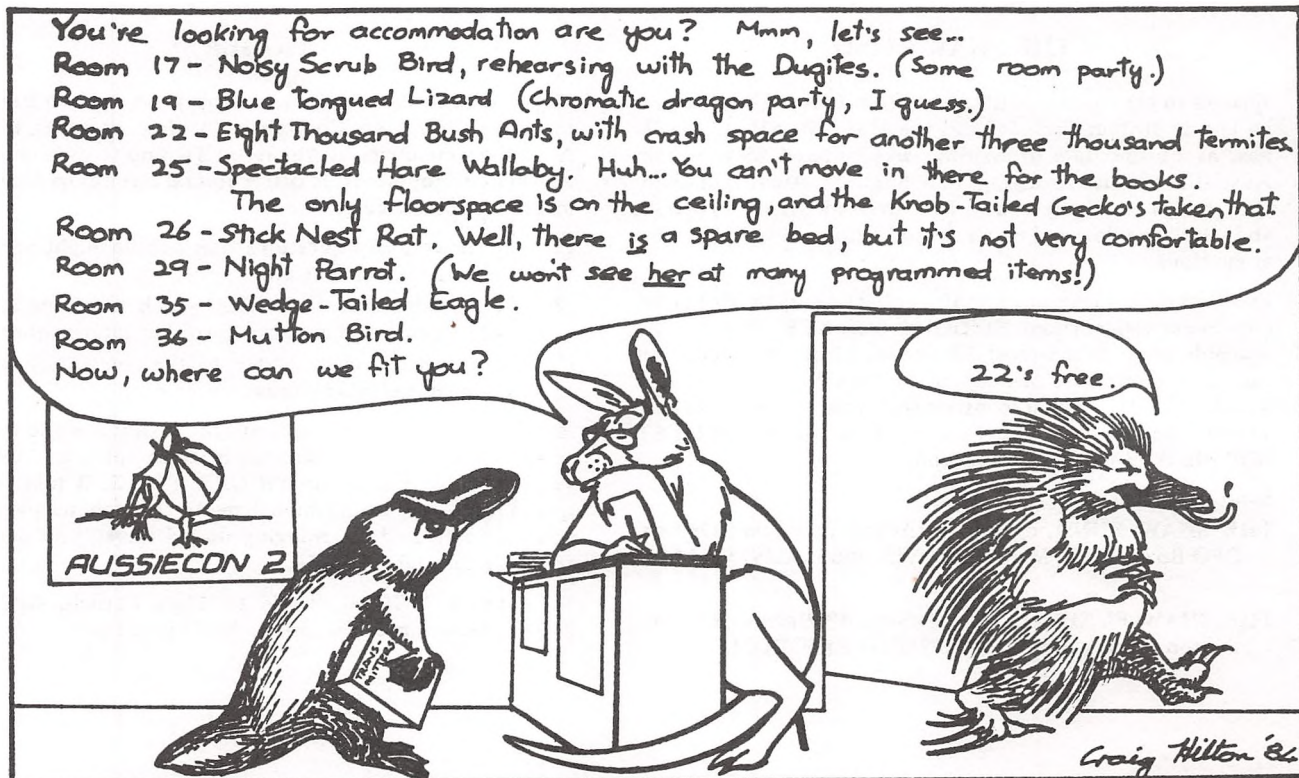 You're looking for accommodation are you? Mmm, let's see...
Room 17 - Noisy Scrub Bird, rehearsing with the Dugites. (Some room party.)
Room 19 - Blue Tongued Lizard (Chromatic dragon party, I guess.)
Room 22 - Eight Thousand Bush Ants, with crash space for another three thousand termites.
Room 25 - Spectacled Hare Wallaby. Huh... You can't move in there for the books.
The only floorspace is on the ceiling, and the Knob-Tailed Gecko's taken that.
Room 26 - Stick Nest Rat. Well, there is a spare bed, but it's not very comfortable.
Room 29 - Night Parrot. (We won't see her at many programmed items!)
Room 35 - Wedge-Tailed Eagle.
Room 36 - Mutton Bird.
Now, where can we fit you?
22's free.
AUSSIECON 2
TRANS-
Craig Hilton